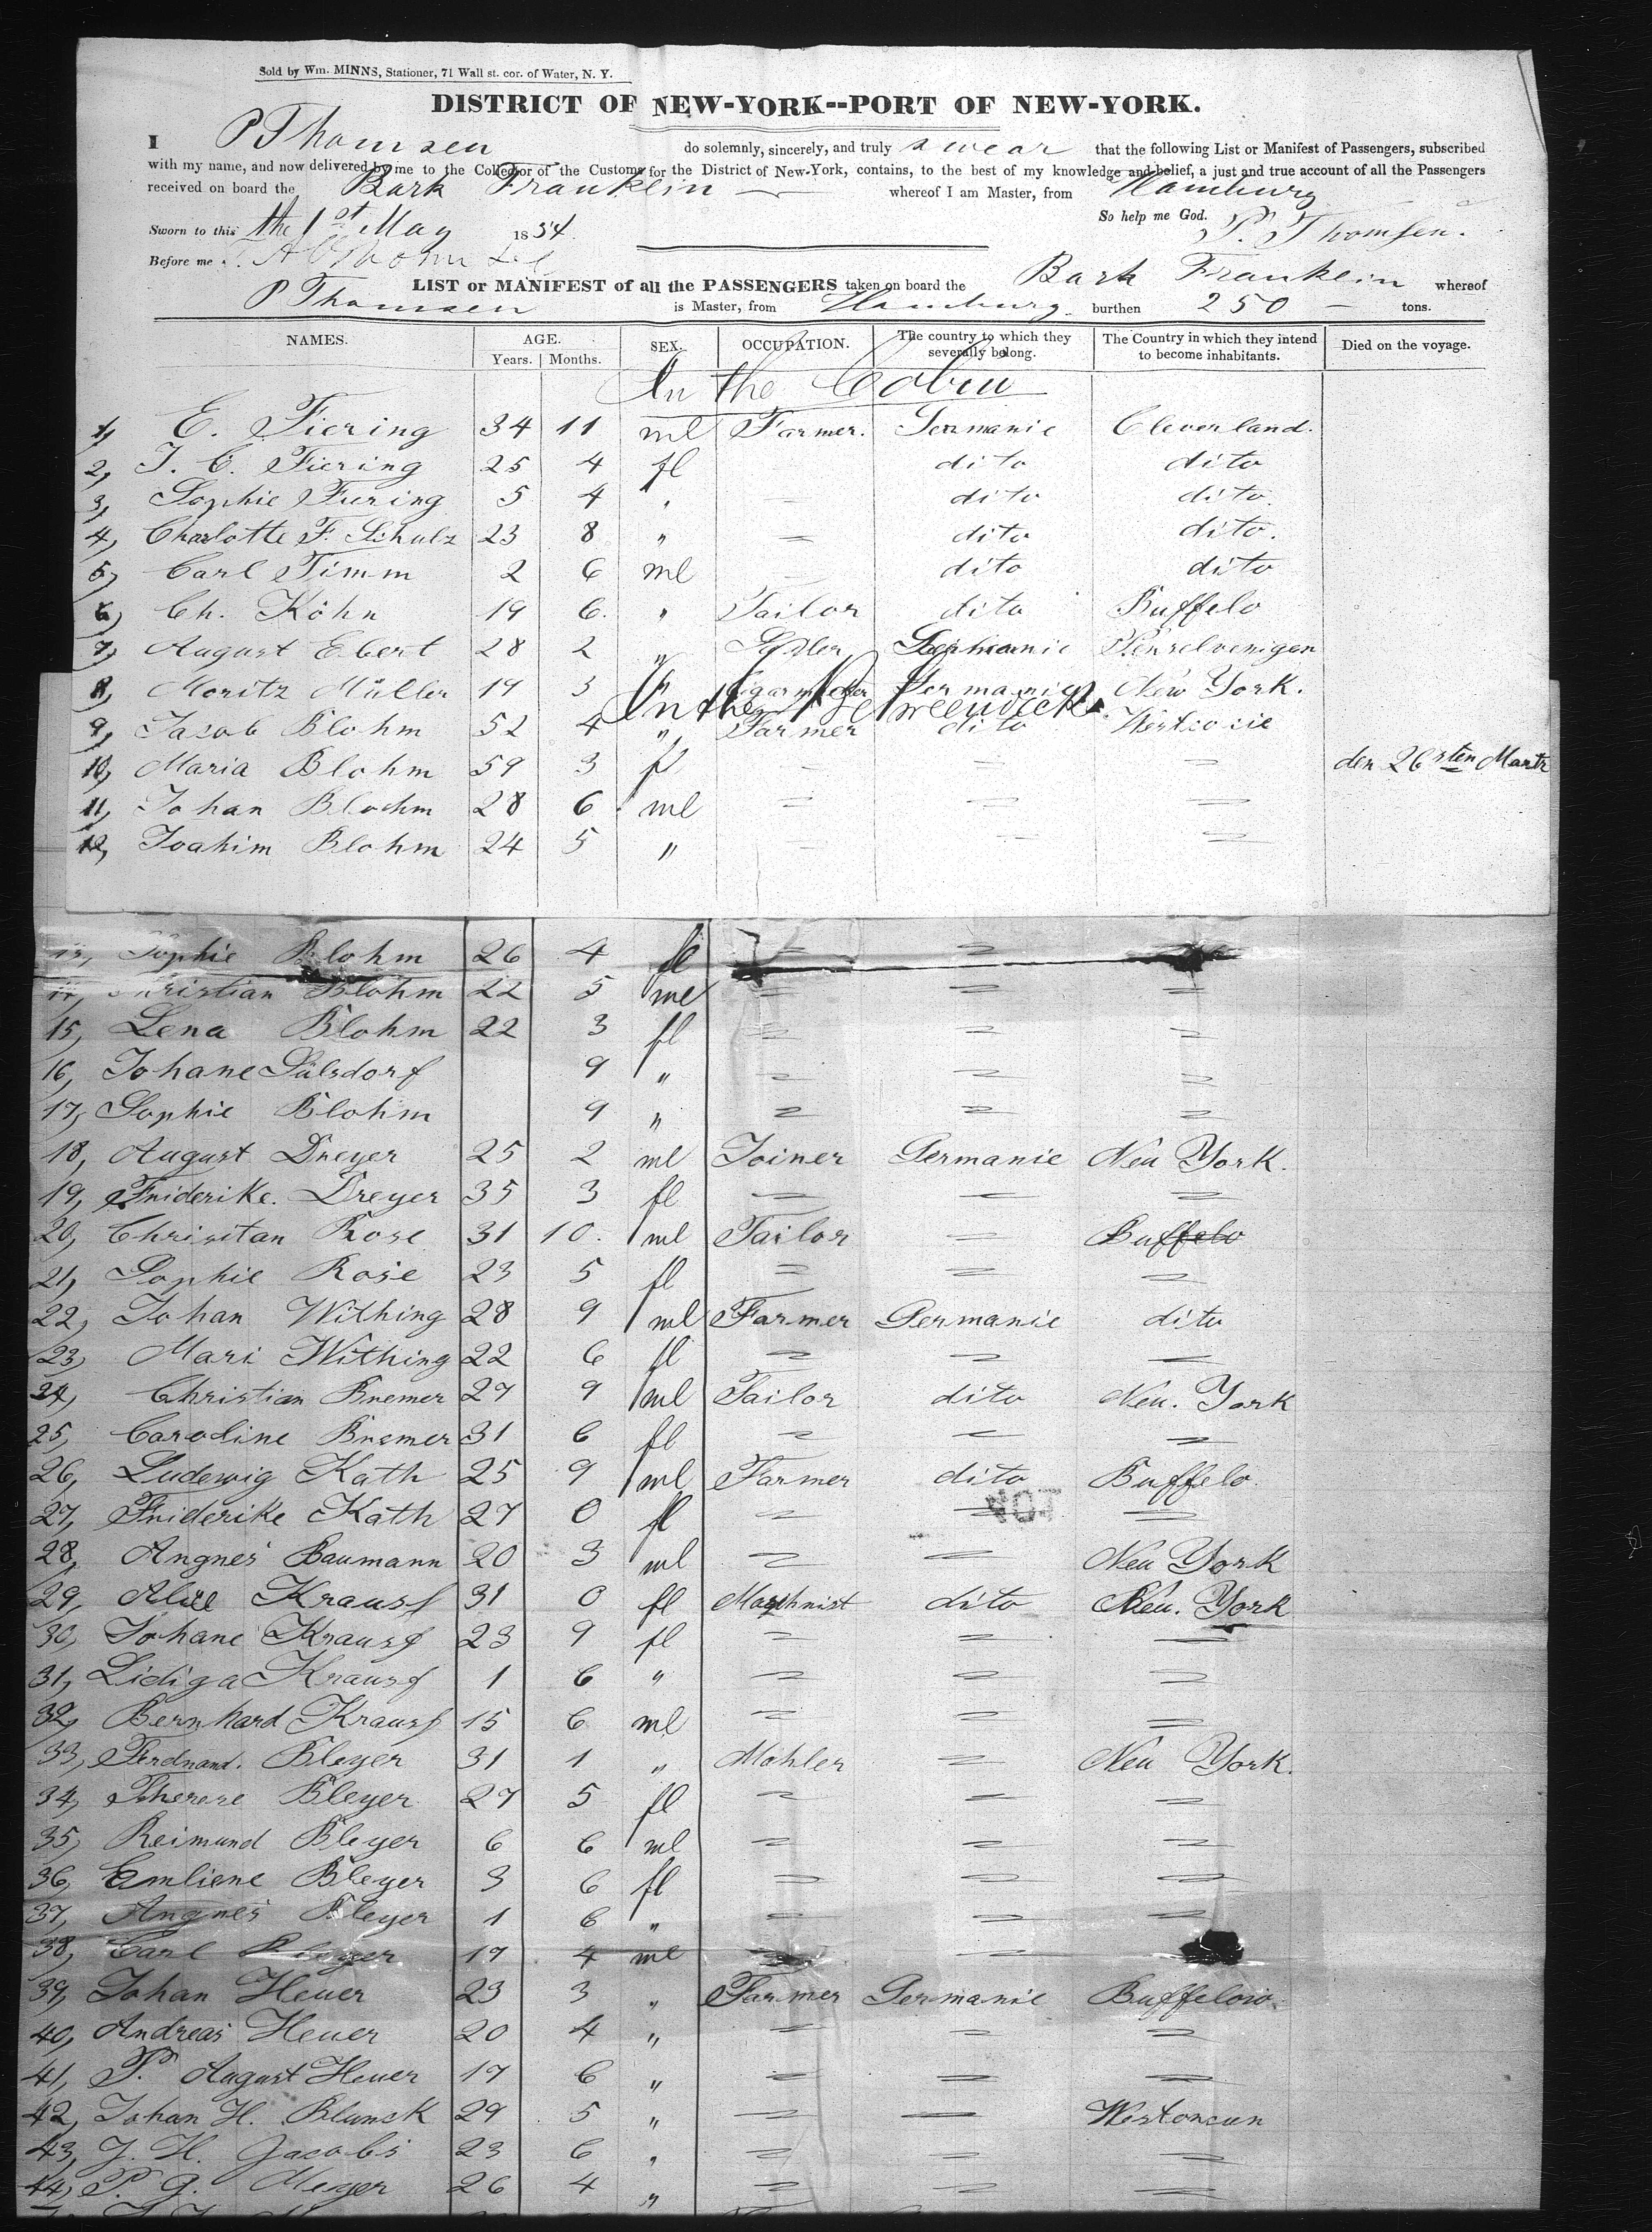 Sold by Wm. MINNS, Stationer, 71 Wall st. cor. of Water, N. Y.
DISTRICT OF NEW-YORK--PORT OF NEW-YORK.
I P Thomsen do solemnly, sincerely, and truly swear that the following List or Manifest of Passengers, subscribed
with my name, and now delivered by me to the Collector of the Customs for the District of New-York, contains, to the best of my knowledge and belief, a just and true account of all the Passengers
received on board the Bark Franklin whereof I am Master, from Hamburg
So help me God. P. Thomsen.
Sworn to this the 1st May 1854.
Before me
LIST or MANIFEST of all the PASSENGERS taken on board the Bark Franklin whereof
P Thomsen is Master, from Hamburg burthen 250 tons.
NAMES. AGE. SEX. OCCUPATION. The country to which they severally belong. The Country in which they intend to become inhabitants. Died on the voyage.
Years. Months.
In the Cabin
1, E. Fiering 34 11 ml Farmer. Germanie Cleverland.
2, J. C. Fiering 25 4 fl dito dito
3, Sophie Fiering 5 4 " = dito dito.
4, Charlotte F. Schulz 23 8 " = dito dito.
5, Carl Timm 2 6 ml = dito dito
6, Ch. Köhn 19 6. " Tailor dito Buffelo
7, August Ebert 28 2 " Germanie Penselvenigen
8, Moritz Müller 19 3 " Germanie New York.
In the Betweendeck.
9, Jacob Blohm 52 4 " Farmer dito
10, Maria Blohm 59 3 fl = = = den 26sten Martz
11, Johan Blohm 28 6 ml = = =
12, Joahim Blohm 24 5 " = = =
13, Sophie Blohm 26 4 fl = = =
14, Christian Blohm 22 5 ml = = =
15, Lena Blohm 22 3 fl = = =
16, Johane Sülsdorf 9 " = = =
17, Sophie Blohm 9 " = = =
18, August Dreyer 25 2 ml Joiner Germanie Neu York.
19, Friderike. Dreyer 35 3 fl = = =
20, Chrisitan Rose 31 10. ml Tailor = Buffelo
21, Sophie Rose 23 5 fl = = =
22, Johan Withing 28 9 ml Farmer Germanie dito
23, Mari Withing 22 6 fl = = =
24, Christian Bremer 27 9 ml Tailor dito Neu. York
25, Caroline Bremer 31 6 fl = = =
26, Ludewig Kath 25 9 ml Farmer dito Buffelo.
27, Friderike Kath 27 0 fl = = =
28, Angnes Baumann 20 3 ml = = Neu York
29, Krausf 31 0 fl Maschnist dito Neu. York
30, Johane Krausf 23 9 fl = = =
31, Lidiga Krausf 1 6 " = = =
32, Bernhard Krausf 15 6 ml = = =
33, Ferdnand. Bleyer 31 1 " Mahler = Neu York.
34, Therese Bleyer 27 5 fl = = =
35, Reimund Bleyer 6 6 ml = = =
36, Emliene Bleyer 3 6 fl = = =
37, Angnes Bleyer 1 6 " = = =
38, Carl Bleyer 19 4 ml = =
39, Johan Heuer 23 3 " Farmer Germanie Buffelow.
40, Andreas Heuer 20 4 " = = =
41, P. August Heuer 17 6 " = = =
42, Johan H. Blunck 29 5 " = = Westonsun
43, J. H. Jacobs 23 6 " = = =
44, P. J. Meyer 26 4 " = = =